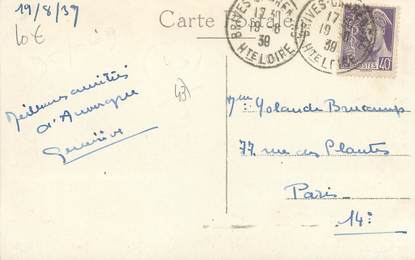 19/8/39
10€
Carte Postale
BRIVES-CHAREN
17 31
19-8
39
HTE LOIRE
BRIVES-CHAREN
17 31
19-8
39
HTE LOIRE
POSTES 40
43
Meilleures amitiés
d'Auvergne
Geneviève
Yolande
77 rue des Plantes
Paris
14e